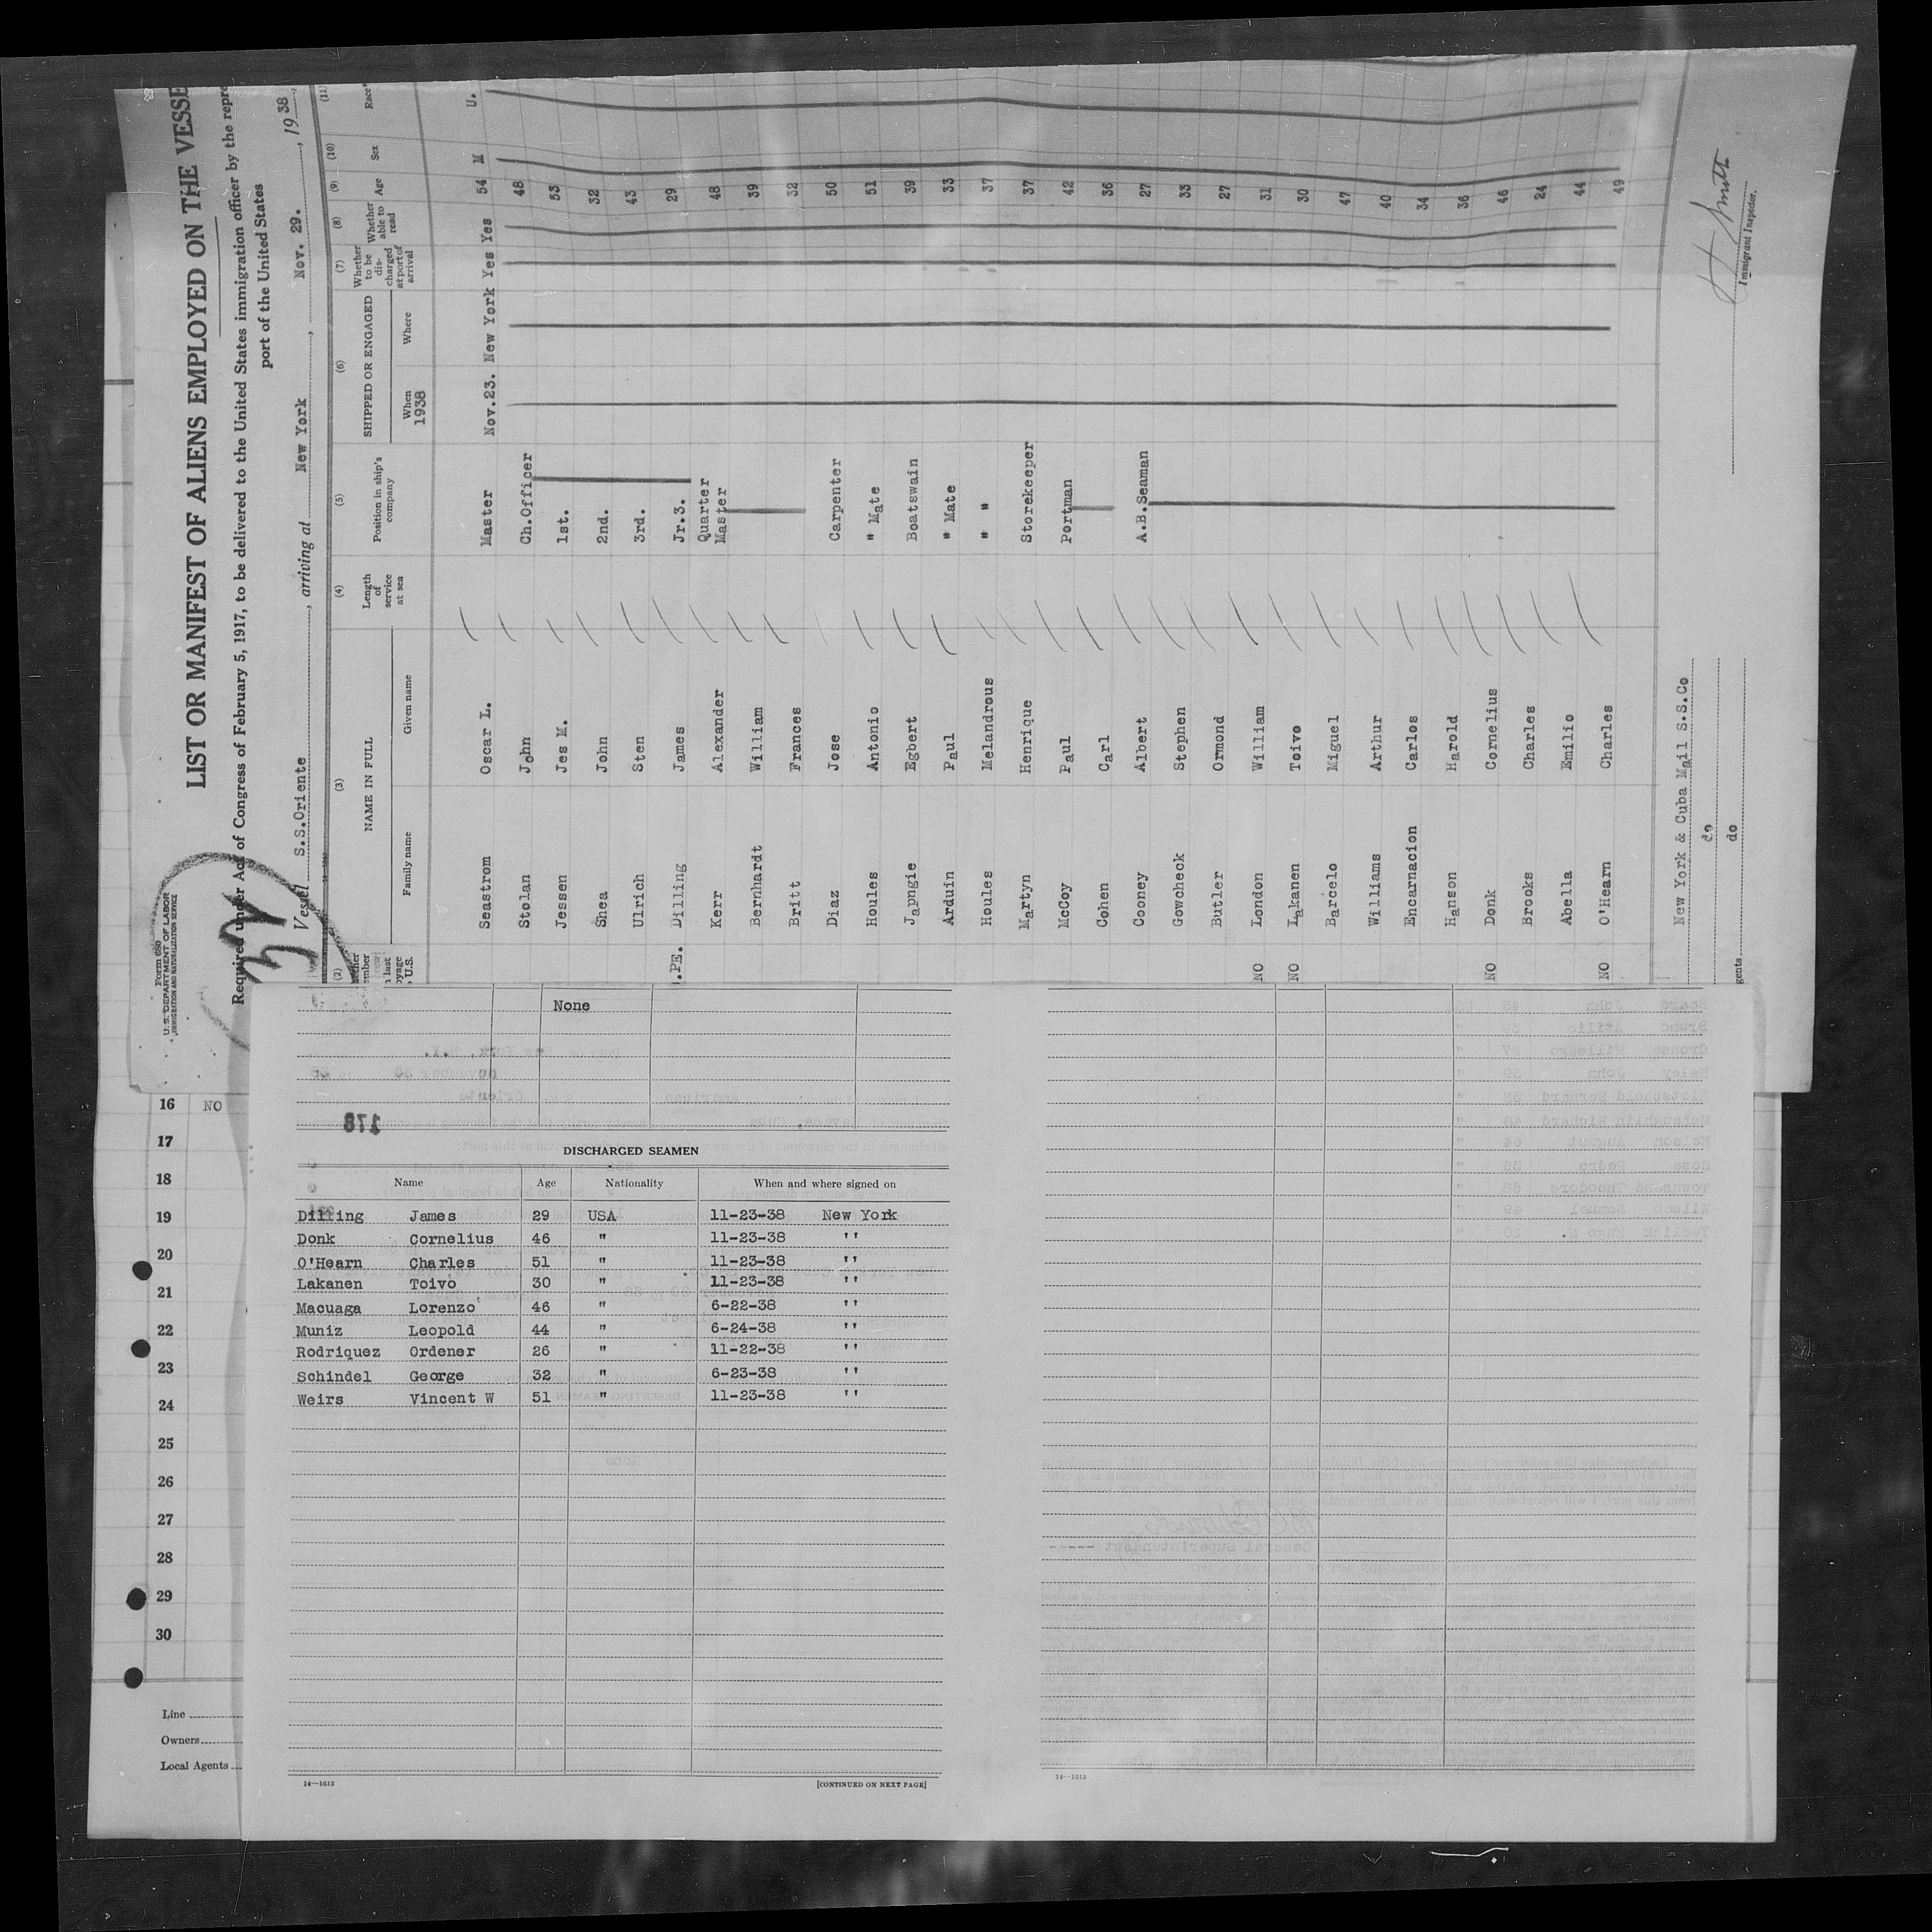 Form 680
U. S. DEPARTMENT OF LABOR
IMMIGRATION AND NATURALIZATION SERVICE
LIST OR MANIFEST OF ALIENS EMPLOYED ON THE VESSE
Required under Act of Congress of February 5, 1917, to be delivered to the United States immigration officer by the repre
port of the United States
Vessel S.S.Oriente, arriving at New York, Nov. 29., 1938
(2) (3) (4) (5) (6) (7) (8) (9) (10) (11)
NAME IN FULL
Family name Given name
Length of service at sea
Position in ship's company
SHIPPED OR ENGAGED
When 1938 Where
Whether to be discharged at port of arrival
Whether able to read
Age
Sex
Race
Seastrom Oscar L. Master Nov.23. New York Yes Yes 54 M U.
Stolan John Ch.Officer 48
Jessen Jes M. 1st. 53
Shea John 2nd. 32
Ulrich Sten 3rd. 43
.PE. Dilling James Jr.3. 29
Kerr Alexander Quarter Master 48
Bernhardt William 39
Britt Frances 32
Diaz Jose Carpenter 50
Houles Antonio " Mate 51
Japngie Egbert Boatswain 39
Arduin Paul " Mate 33
Houles Melandrous " " 37
Martyn Henrique Storekeeper 37
McCoy Paul Portman 42
Cohen Carl 36
Cooney Albert A.B.Seaman 27
Gowcheck Stephen 33
Butler Ormond 27
NO London William 31
NO Lakanen Toivo 30
Barcelo Miguel 47
Williams Arthur 40
Encarnacion Carlos 34
Hanson Harold 36
NO Donk Cornelius 46
Brooks Charles 24
Abella Emilio 44
NO O'Hearn Charles 49
New York & Cuba Mail S.S.Co
do
gents do
H Smith
Immigrant Inspector.
None
178
DISCHARGED SEAMEN
Name Age Nationality When and where signed on
Dilling James 29 USA 11-23-38 New York
Donk Cornelius 46 " 11-23-38 ''
O'Hearn Charles 51 " 11-23-38 ''
Lakanen Toivo 30 " 11-23-38 ''
Macuaga Lorenzo 46 " 6-22-38 ''
Muniz Leopold 44 " 6-24-38 ''
Rodriquez Ordener 26 " 11-22-38 ''
Schindel George 32 " 6-23-38 ''
Weirs Vincent W 51 " 11-23-38 ''
14—1613 [CONTINUED ON NEXT PAGE]
14—1613
16 NO
17
18
19
20
21
22
23
24
25
26
27
28
29
30
Line
Owners
Local Agents